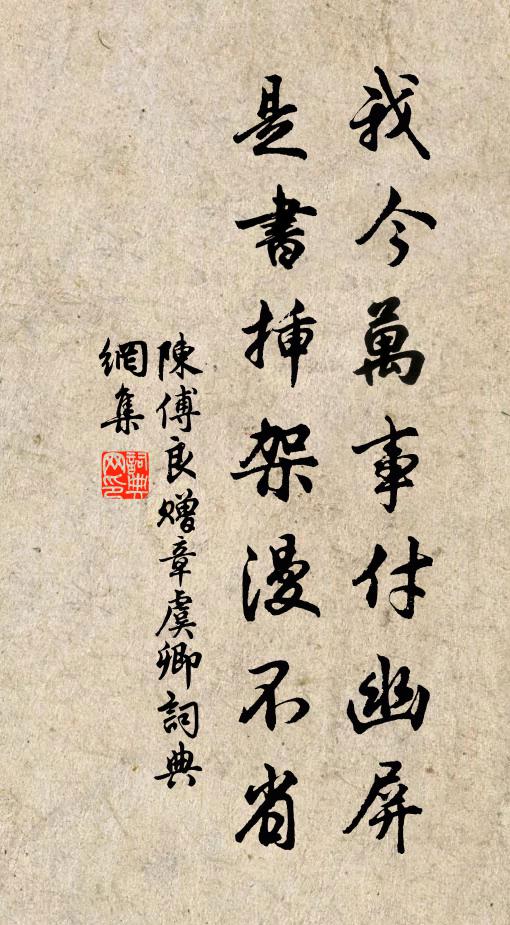 我今萬事付幽屏
是書插架漫不省
陳傅良贈章虞卿詞典
網集
詞典網印